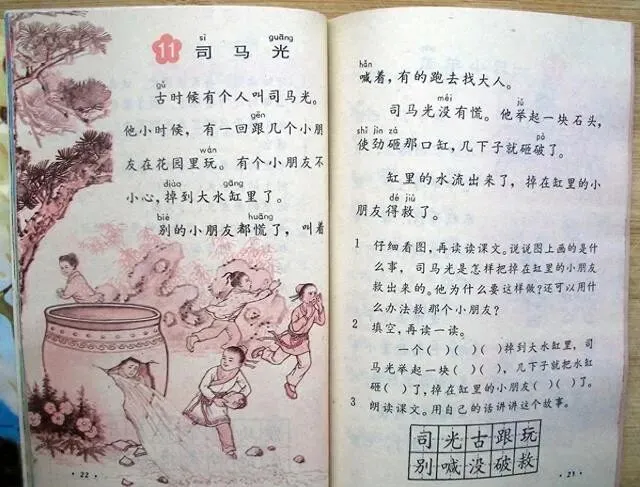 sī guāng
11 司马光
gǔ
古时候有个人叫司马光。
gēn
他小时候，有一回跟几个小朋
wán
友在花园里玩。有个小朋友不
diào gāng
小心，掉到大水缸里了。
bié huāng
别的小朋友都慌了，叫着
· 22 ·
hǎn
喊着，有的跑去找大人。
méi jǔ
司马光没有慌。他举起一块石头，
shǐ jìn zá pò
使劲砸那口缸，几下子就砸破了。
缸里的水流出来了，掉在缸里的小
dé jiù
朋友得救了。
1 仔细看图，再读读课文。说说图上画的是什
么事，司马光是怎样把掉在缸里的小朋友
救出来的。他为什么要这样做？还可以用什
么办法救那个小朋友？
2 填空，再读一读。
一个( )( )( )掉到大水缸里，司
马光举起一块( )( )，几下子就把水缸
砸( )了，掉在缸里的小朋友( )( )了。
3 朗读课文。用自己的话讲讲这个故事。
司光古跟玩
别喊没破救